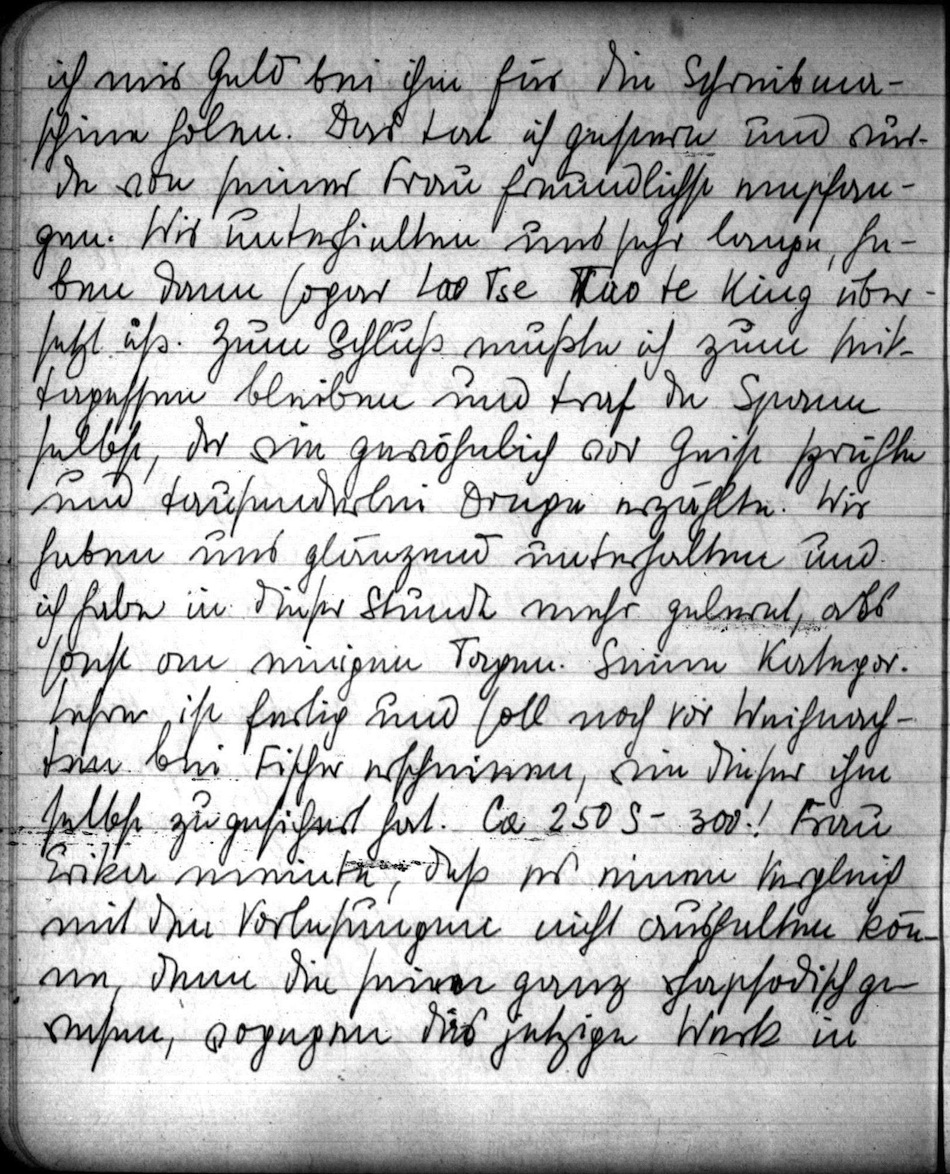 ich mir Geld bei ihm für die Schreibma-
schine holen. Das tat ich gestern und wur-
de von seiner Frau freundlichst empfan-
gen. Wir unterhielten uns sehr lange, ha-
ben dann sogar Lao Tse Tao te King über-
setzt usf. Zum Schluß mußte ich zum Mit-
tagessen bleiben und traf da Spann
selbst, der wie gewöhnlich vor Geist sprühte
und tausenderlei Dinge erzählte. Wir
haben uns glänzend unterhalten und
ich habe in dieser Stunde mehr gelernt, als
sonst an einigen Tagen. Seine Kategor.
lehre ist fertig und soll noch vor Weihnach-
ten bei Fischer erscheinen, wie dieser ihm
selbst zugesichert hat. Ca 250 S - 300.! Frau
Erika meinte, daß es einen Vergleich
mit den Vorlesungen nicht aushalten kön-
ne, denn die seien ganz rhapsodisch ge-
wesen, wogegen das jetzige Werk in